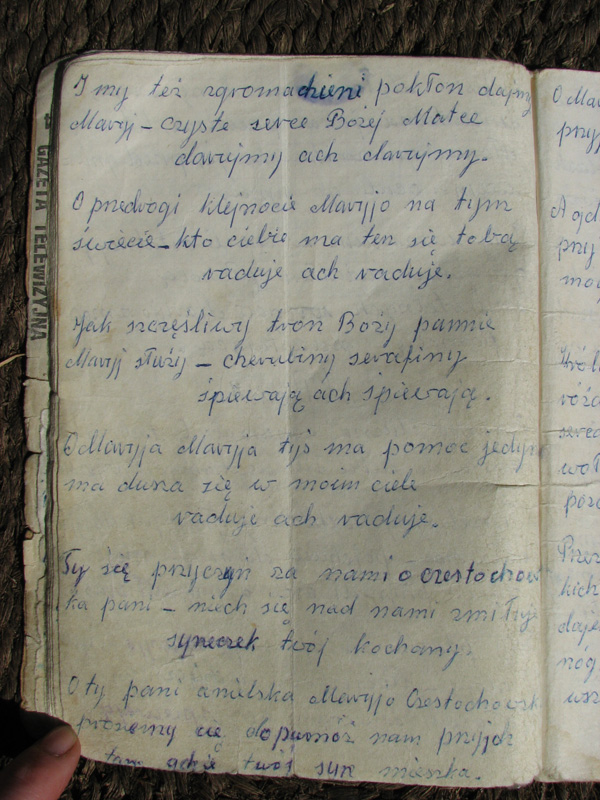 I my też zgromadzieni pokłon dajmy
Maryj – czyste serce Bożej Matce
darujmy ach darujmy.
O predrogi klejnocie Maryjo na tym
świecie – kto ciebie ma ten się tobą
raduje ach raduje.
Jak szczęśliwy tron Boży pannie
Maryj służy – cherubiny serafiny
śpiewają ach śpiewają.
O Maryja Maryja tyś ma pomoc
ma dusza się w moim ciele
raduje ach raduje.
Ty się przyczyń za nami o czestochow
ka pani – niech się nad nami zmiłuje
syneczek twój kochany.
O ty pani anielska Maryjo
prosimy cię dopomóż nam przyjść
tam gdzie twój syn mieszka.
GAZETA TELEWIZYJNA
O Mar
przy
A gd
przy
moj
Król
róża
serca
woł
poro
Przez
kich
daje
nóg
wsz